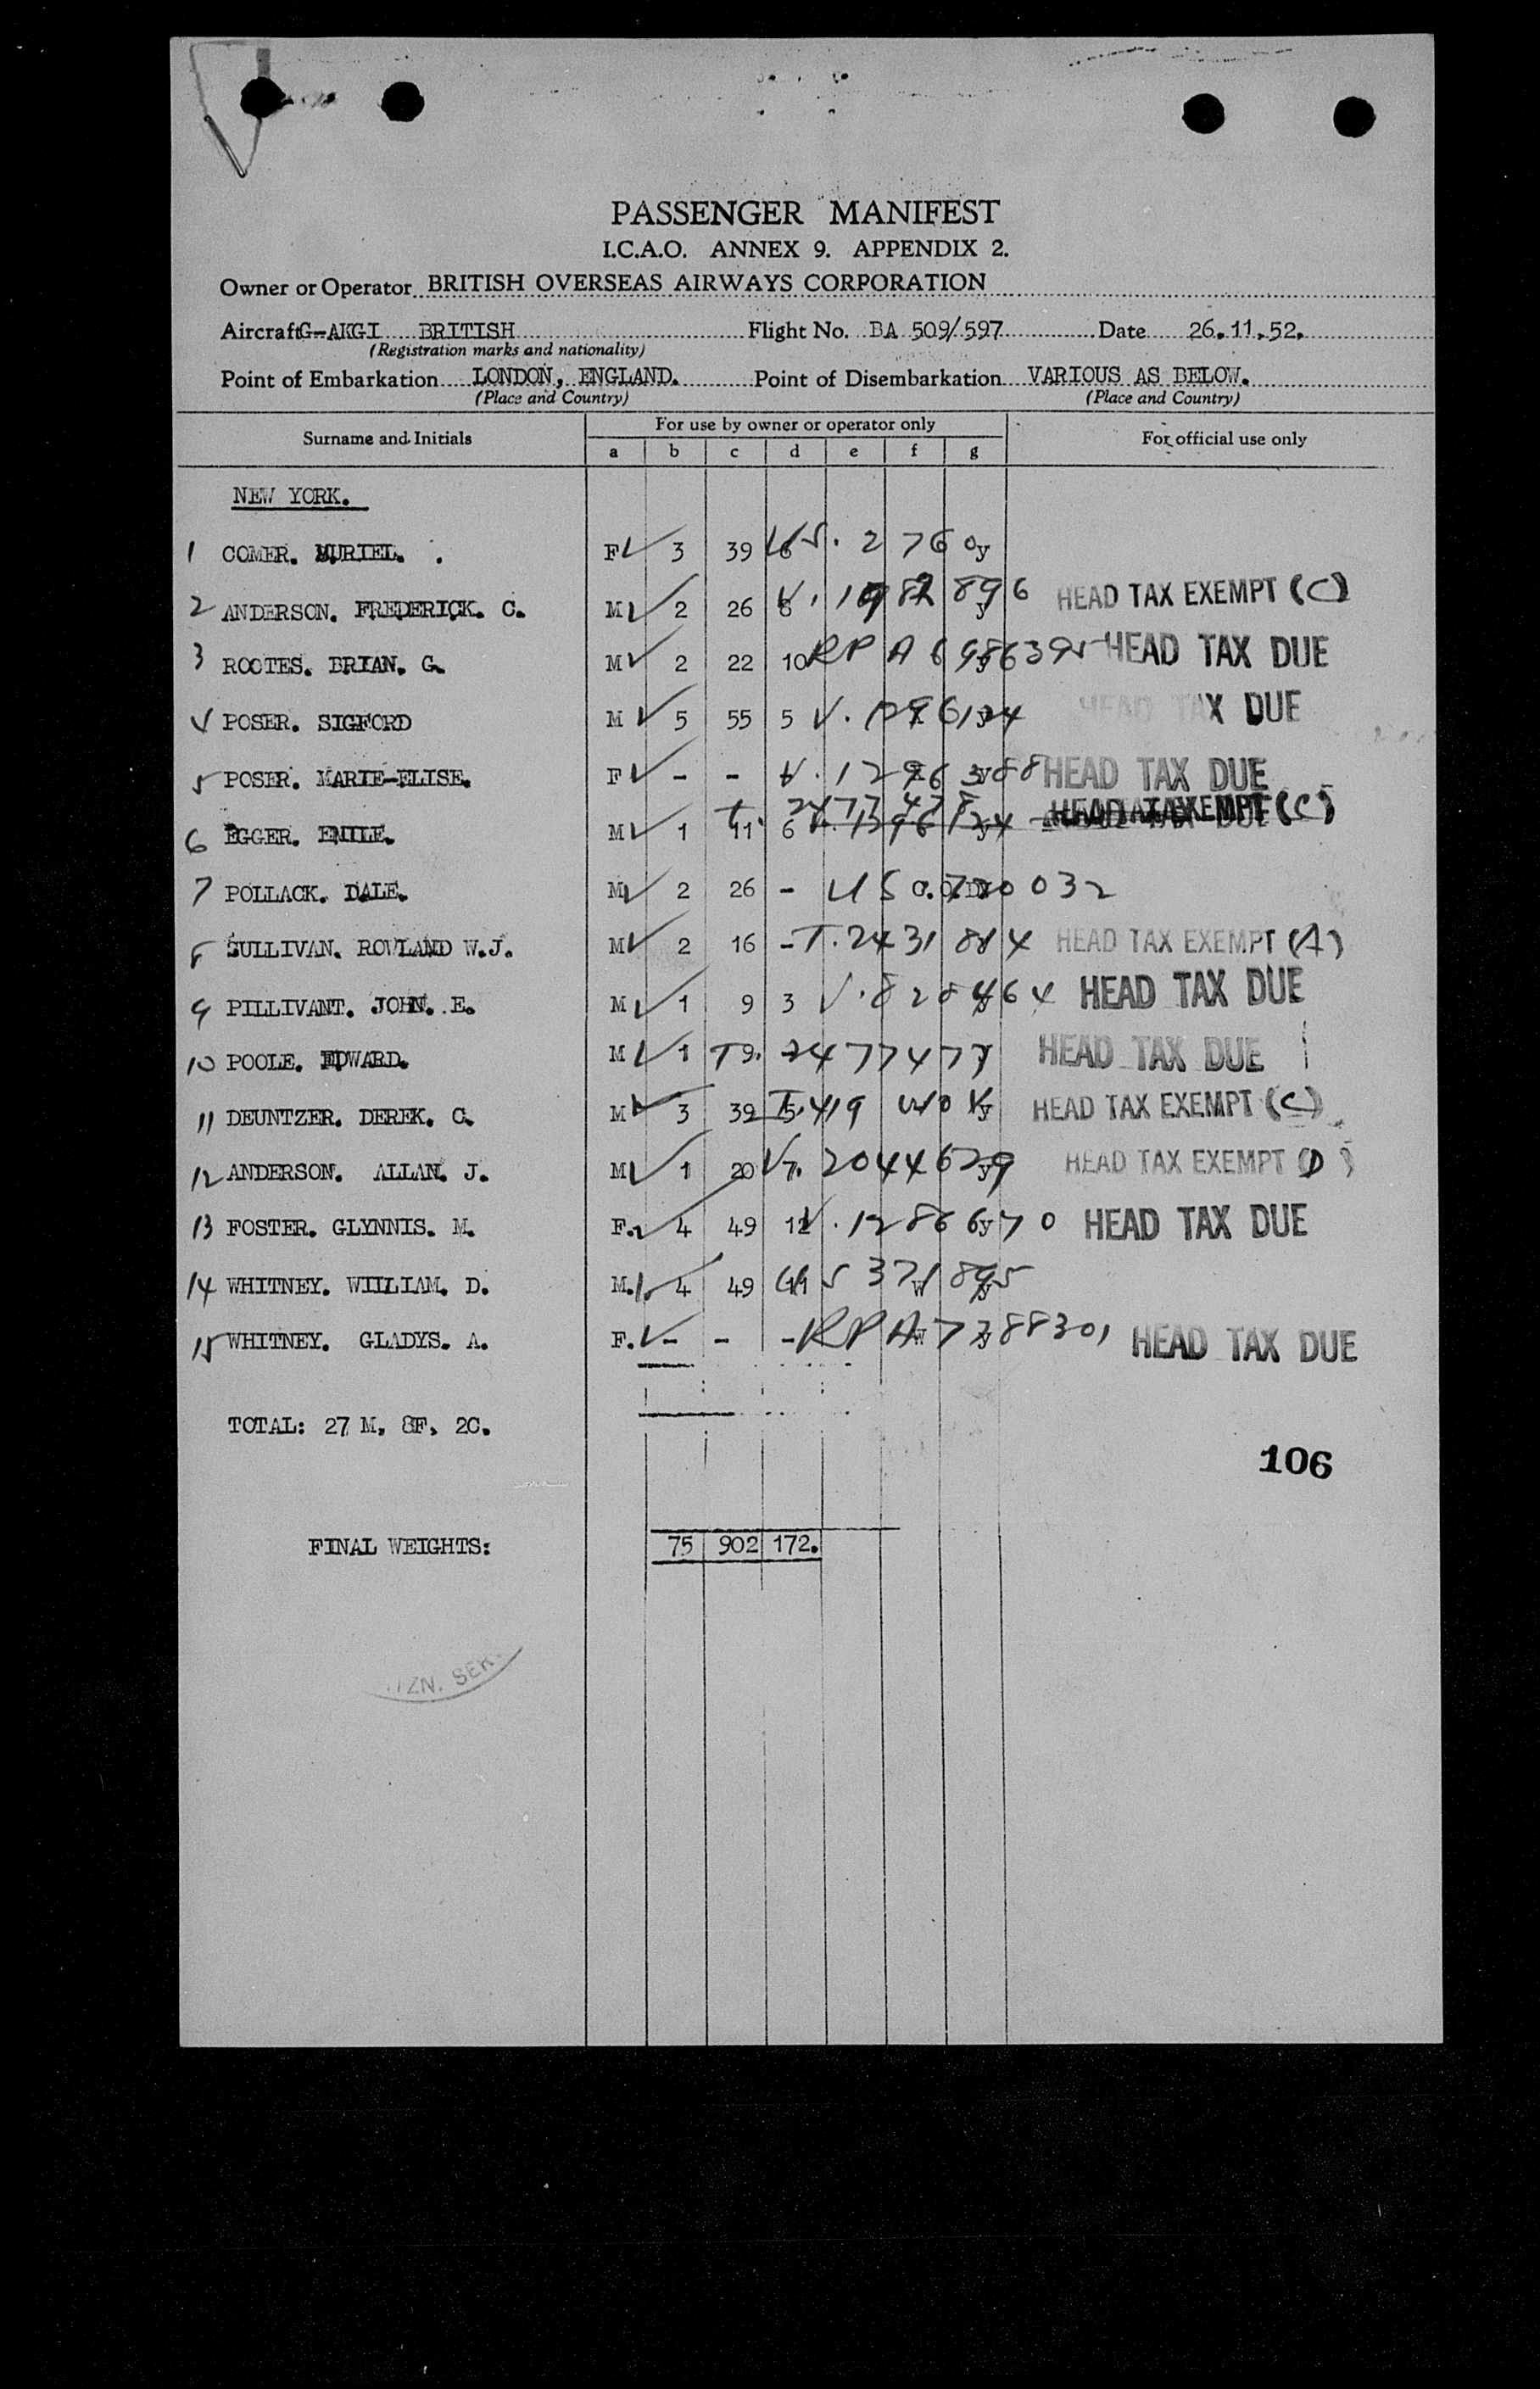 PASSENGER MANIFEST
I.C.A.O. ANNEX 9. APPENDIX 2.
Owner or Operator BRITISH OVERSEAS AIRWAYS CORPORATION
Aircraft G-AKGI BRITISH Flight No. BA 509/597 Date 26.11.52.
(Registration marks and nationality)
Point of Embarkation LONDON, ENGLAND. Point of Disembarkation VARIOUS AS BELOW.
(Place and Country) (Place and Country)
Surname and Initials For use by owner or operator only For official use only
a b c d e f g
NEW YORK.
1 COMER. MURIEL. . F 3 39 6 US. 2760 y
2 ANDERSON. FREDERICK. C. M 2 26 6 V. HEAD TAX EXEMPT (C)
3 ROOTES. BRIAN. G. M 2 22 10 RP A HEAD TAX DUE
POSER. SIGFORD M 5 55 5 V. HEAD TAX DUE
5 POSER. MARIE-ELISE. F - - V. HEAD TAX DUE
6 EGGER. EMILE. M 1 11 6 T. HEAD TAX EXEMPT (C)
7 POLLACK. DALE. M 2 26 - US
8 SULLIVAN. ROWLAND W.J. M 2 16 - T. HEAD TAX EXEMPT (A)
9 PILLIVANT. JOHN. E. M 1 9 3 V. 828464 HEAD TAX DUE
10 POOLE. EDWARD. M 1 9. T 2477477 HEAD TAX DUE
11 DEUNTZER. DEREK. C. M 3 39 5 T. HEAD TAX EXEMPT (C)
12 ANDERSON. ALLAN. J. M 1 20 7. V. 2044629 HEAD TAX EXEMPT (D)
13 FOSTER. GLYNNIS. M. F. 4 49 12 V. 1286670 HEAD TAX DUE
14 WHITNEY. WIILIAM. D. M. 4 49 US
15 WHITNEY. GLADYS. A. F. - - - RP A 7388301 HEAD TAX DUE
TOTAL: 27 M, 8F, 2C.
106
FINAL WEIGHTS: 75 902 172.